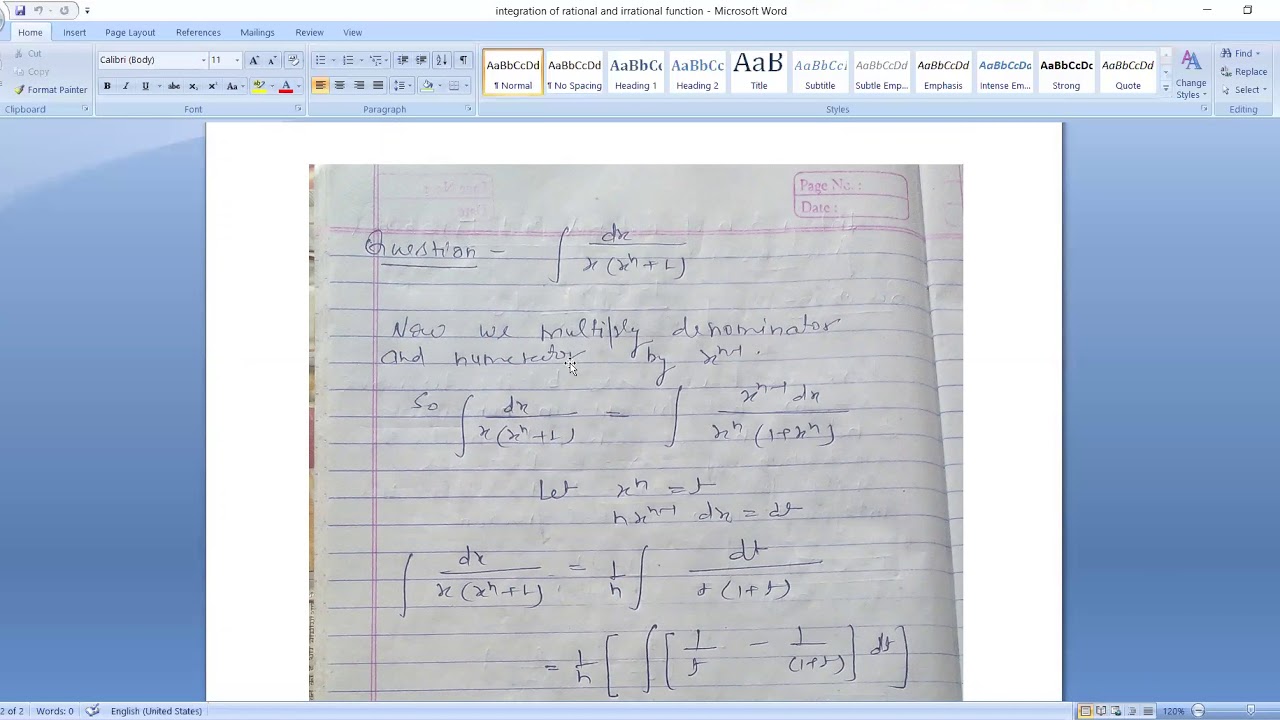 integration of rational and irrational function - Microsoft Word
Home Insert Page Layout References Mailings Review View
Cut
Copy
Format Painter
Clipboard
Calibri (Body) 11
Font
Paragraph
AaBbCcDd AaBbCcDd AaBbCc AaBbCc AaB AaBbCc AaBbCcDd AaBbCcDd AaBbCcDd AaBbCcDc AaBbCcDd
¶ Normal ¶ No Spacing Heading 1 Heading 2 Title Subtitle Subtle Emp... Emphasis Intense Em... Strong Quote
Change Styles
Styles
Find
Replace
Select
Editing
Page No. :
Date :
Question - ∫ dx / x(xⁿ+1)
Now we multiply denominator
and numerator by xⁿ⁻¹.
So ∫ dx / x(xⁿ+1) = ∫ xⁿ⁻¹ dx / xⁿ(1+xⁿ)
Let xⁿ = t
nxⁿ⁻¹ dx = dt
∫ dx / x(xⁿ+1) = 1/n ∫ dt / t(1+t)
= 1/n [ ∫ [ 1/t - 1/(1+t) ] dt ]
2 of 2 Words: 0 English (United States) 120%